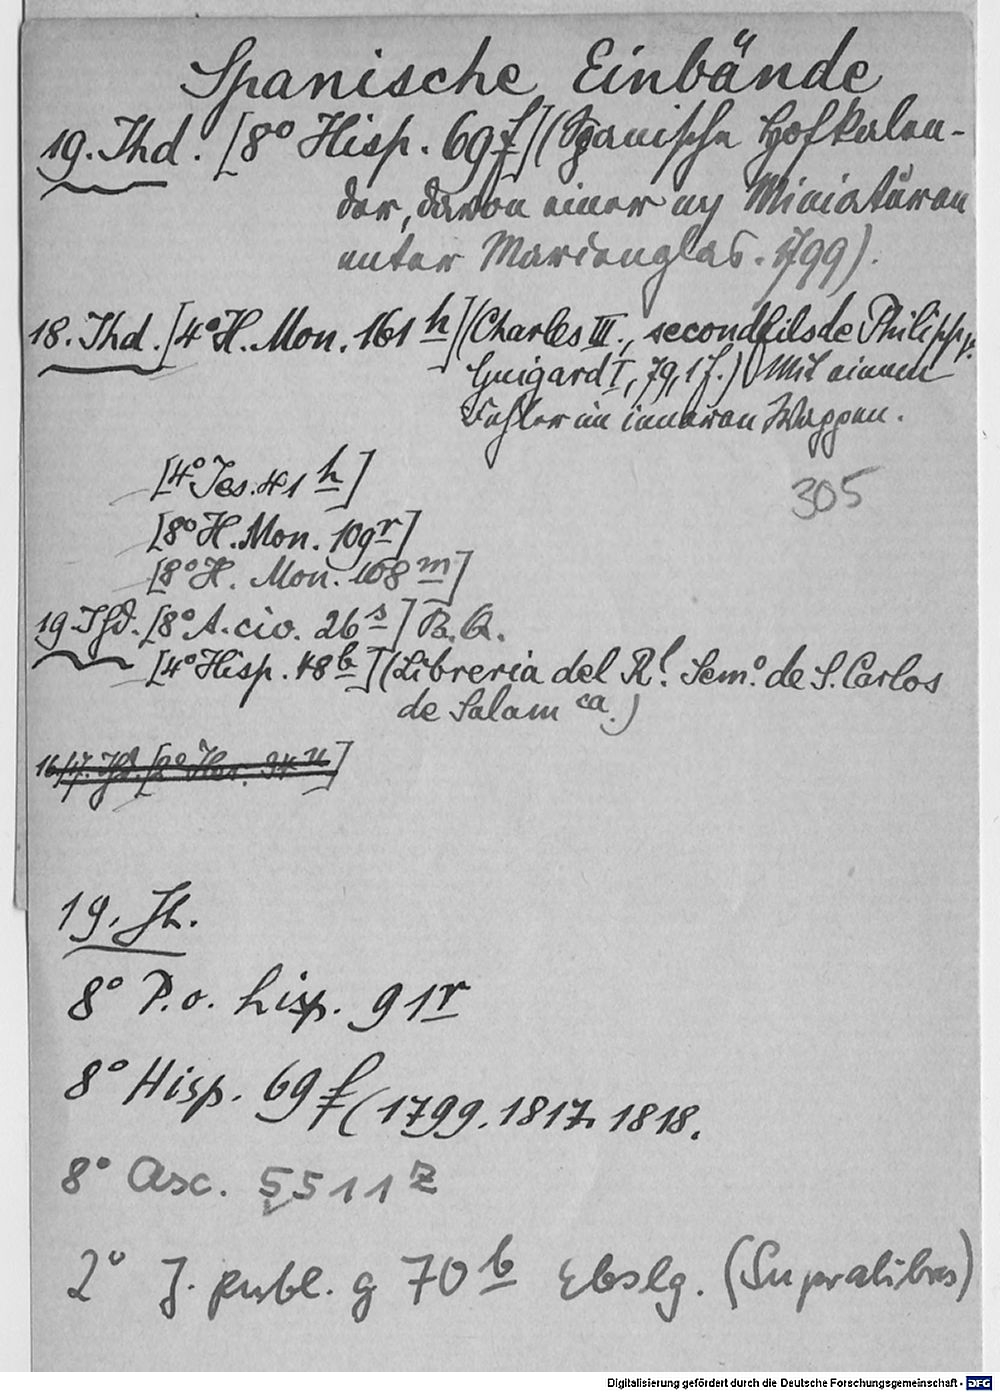 Spanische Einbände
19. Jhd. [8° Hisp. 69 f] (Spanische Hofkalen-
der, davon einer m Miniaturen
unter Marienglas. 1799).
18. Jhd. [4° H. Mon. 161 h] (Charles III., second fils de Philipp V.
Guigard I, 79, 1 f.) Mit einem
Fehler im inneren Wappen.
[4° Jes. 41 h]
305
[8° H. Mon. 109 r]
[8° H. Mon. 168 m]
19. Jhd. [8° A. civ. 26 s] B. Q.
[4° Hisp. 48 b] (Libreria del Rl. Semo. de S. Carlos
de Salam ca.)
16/17. Jhd. [2°
19. Jh.
8° P. o. hisp. 91 r
8° Hisp. 69 f (1799. 1817. 1818.
8° Asc. 5511 z
2° J. publ. g 70 b Ebslg. (Supralibros)
Digitalisierung gefördert durch die Deutsche Forschungsgemeinschaft - DFG